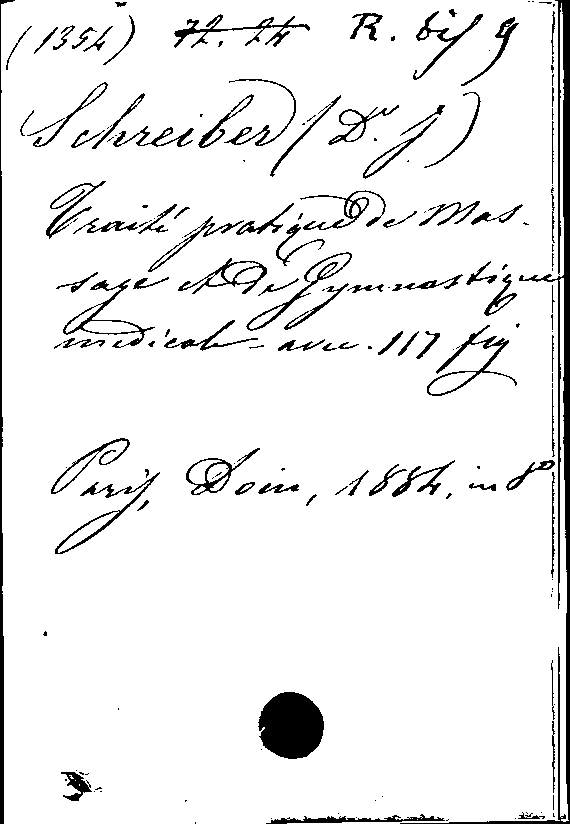 (1354) 72.24 R. bis 9
Schreiber (Dr. J)
Traité pratique de Mas-
sage et de Gymnastique
médicale - avec 117 fig
Paris, Doin, 1884, in 8º